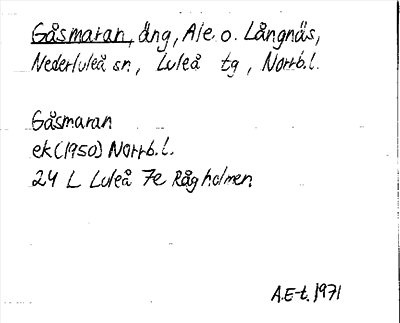 Gåsmaran, äng, Ale o. Långnäs,
Nederluleå sn., Luleå tg, Norrb.l.
Gåsmaran
ek (1950) Norrb.l.
24 L Luleå 7e Rågholmen
A.E-t. 1971